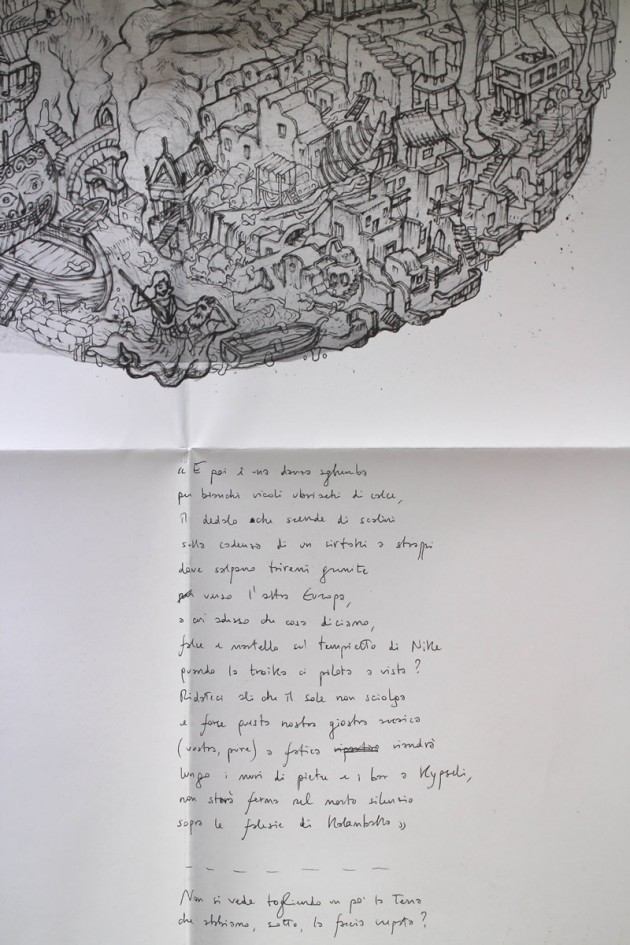 « E poi è una danza sghemba
per bianchi vicoli ubriachi di calce,
il dedalo che scende di scalini
sulla cadenza di un sirtaki a strappi
dove salpano triremi gremite
verso l'altra Europa,
a cui adesso che cosa diciamo,
falce e martello sul tempietto di Nike
quando la troika ci pilota a vista?
Ridateci ali che il sole non sciolga
e forse questa nostra giostra
(vostra, pure) a fatica riandrà
lungo i muri di pietra e i bar a Kypseli,
non starà ferma nel morto silenzio
sopra le falesie di »
Non si vede togliendo un po' la Terra
che abbiamo, sotto, la faccia